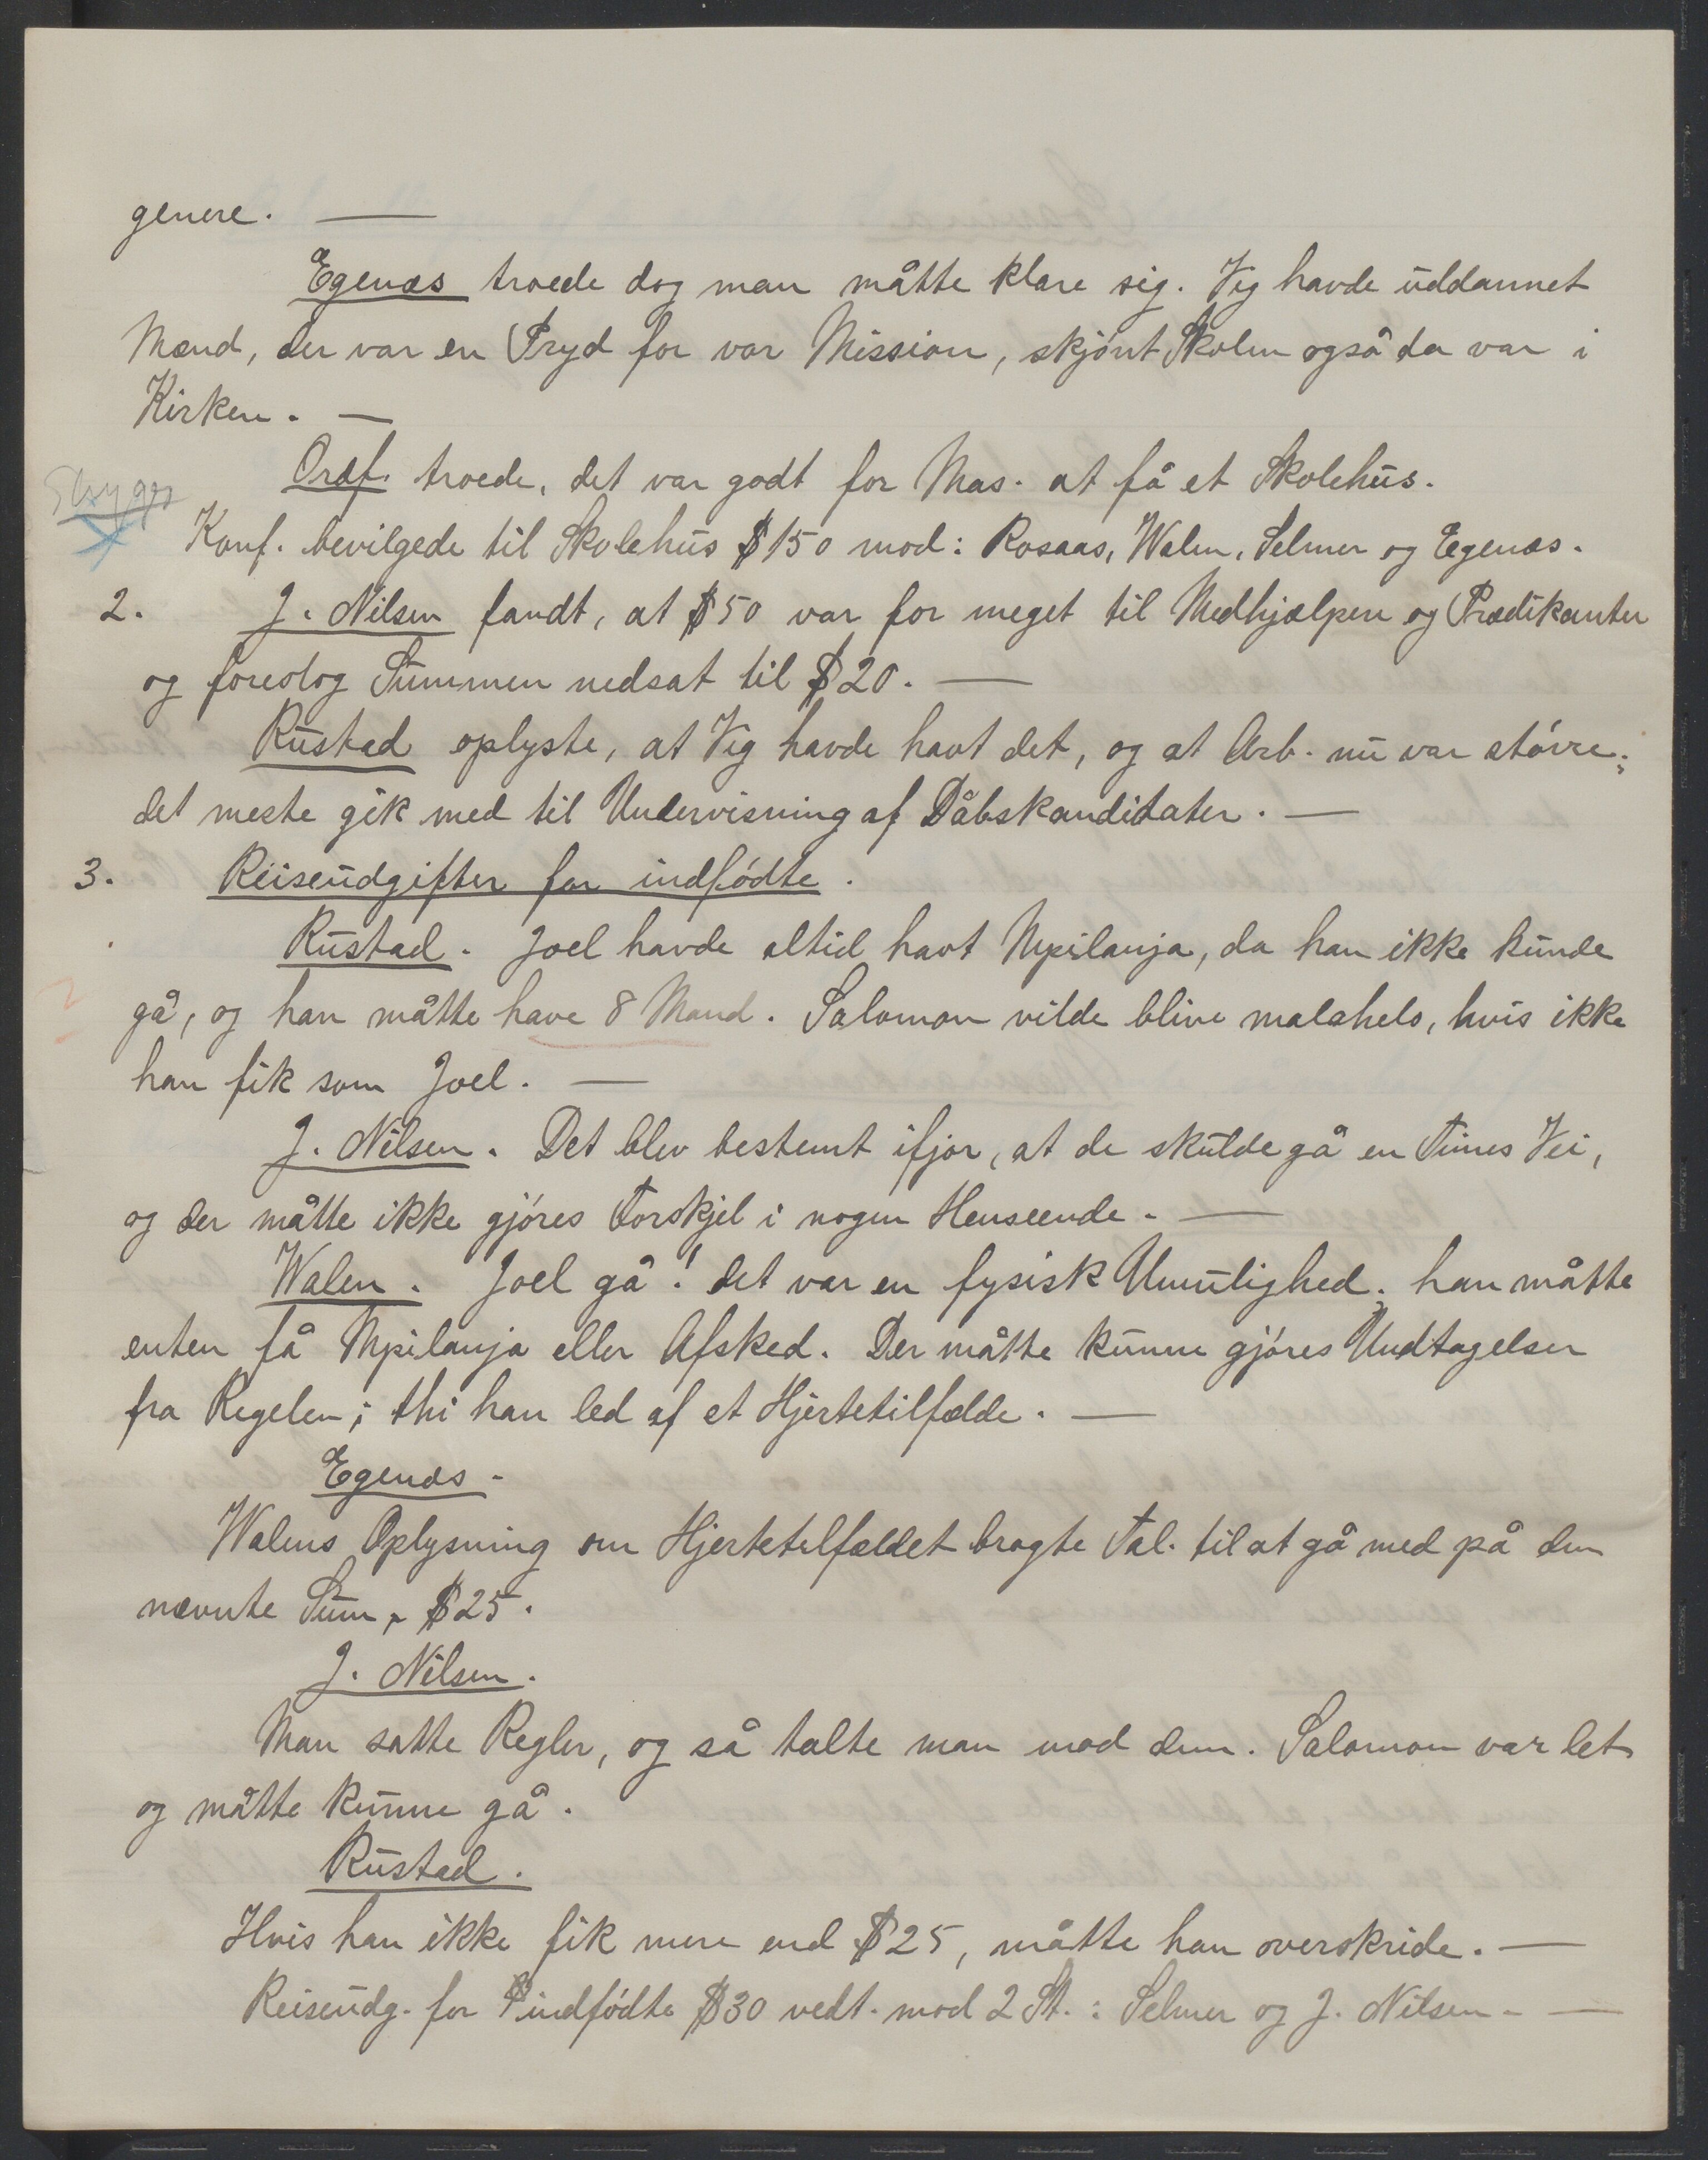 genere. —
Egenæs troede dog man måtte klare sig. Vig havde uddannet
Mænd, der var en Pryd for vor Mission, skjönt Skolen også da var i
Kirken. —
Ordf. troede, det var godt for Mas. at få et Skolehus.
Stryges
Konf. bevilgede til Skolehus $150 mod: Rosaas, Walen, Selmer og Egenæs.
2. J. Nilsen fandt, at $50 var for meget til Medhjælpere og Prædikanter
og foreslog Summen nedsat til $20. —
Rustad oplyste, at Vig havde havt det, og at Arb. nu var större;
det meste gik med til Undervisning af Dåbskandidater. —
3. Reiseudgifter for indfödte.
Rustad. Joel havde altid havt Mpilanja, da han ikke kunde
gå, og han måtte have 8 Mand. Salomon vilde blive malahelo, hvis ikke
han fik som Joel. —
J. Nilsen. Det blev bestemt ifjor, at de skulde gå en Times Vei,
og der måtte ikke gjöres Forskjel i nogen Henseende. —
Walen. Joel gå! det var en fysisk Umulighed; han måtte
enten få Mpilanja eller Afsked. Der måtte kunne gjöres Undtagelser
fra Regelen; thi han led af et Hjertetilfælde. —
Egenæs.
Walens Oplysning om Hjertetilfældet bragte Tal. til at gå med på den
nævnte Sum, $25.
J. Nilsen.
Man satte Regler, og så talte man mod dem. Salomon var let
og måtte kunne gå.
Rustad.
Hvis han ikke fik mere end $25, måtte han overskride. —
Reiseudg. for indfödte $30 vedt. mod 2 St.: Selmer og J. Nilsen. —